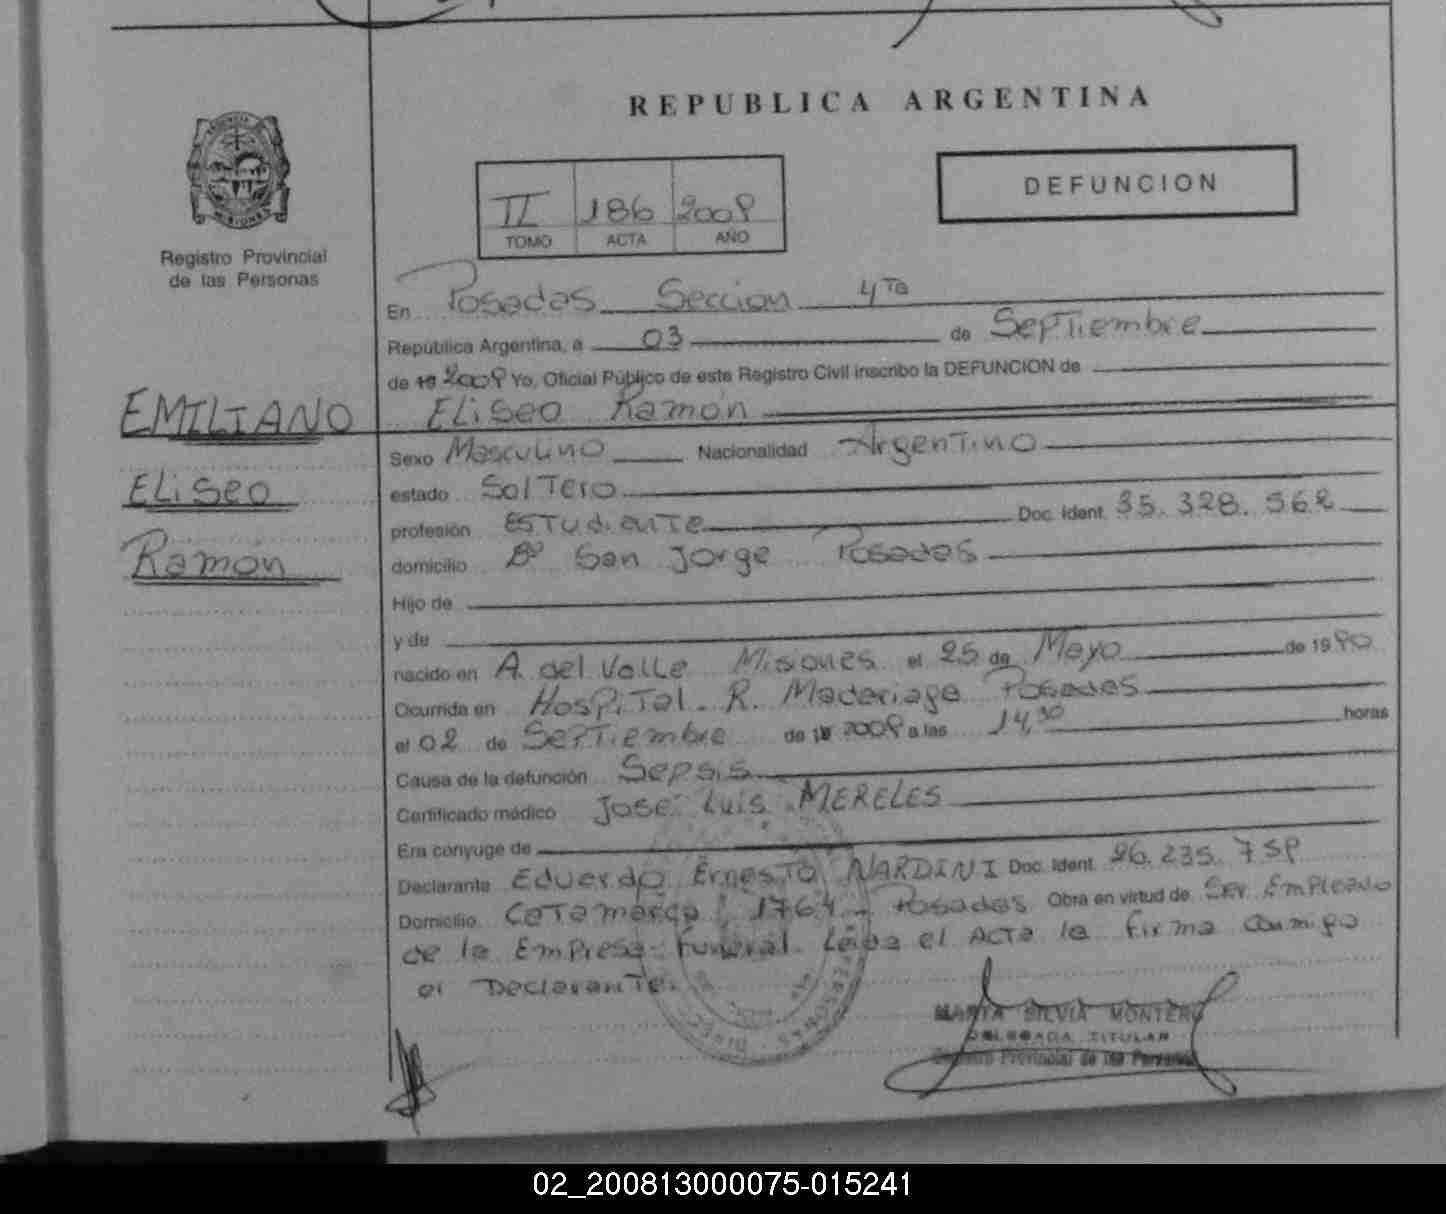 REPUBLICA ARGENTINA
DEFUNCION
II 186 2008
TOMO ACTA AÑO
Registro Provincial
de las Personas
En Posadas Seccion 4Ta
República Argentina, a 03 de Septiembre
de 19 2008 Yo, Oficial Público de este Registro Civil inscribo la DEFUNCION de
EMILIANO Eliseo Ramón
Eliseo
Ramón
Sexo Masculino Nacionalidad Argentino
estado Soltero
profesión Estudiante Doc. Ident. 35.328.562
domicilio Bº San Jorge Posadas
Hijo de
y de
nacido en A. del Valle Misiones el 25 de Mayo de 1990
Ocurrida en Hospital R. Madariaga Posadas
el 02 de Septiembre de 2008 a las 14,30 horas
Causa de la defunción Sepsis
Certificado médico Jose Luis MERELES
Era cónyuge de
Declarante Eduardo Ernesto NARDINI Doc. Ident. 26.235.758
Domicilio Catamarca 1764 - Posadas Obra en virtud de Ser Empleado
de la Empresa Funeral. Leida el Acta la firma conmigo
el Declarante.
MARTA SILVIA MONTERO
DELEGADA TITULAR
Registro Provincial de las Personas
02_200813000075-015241